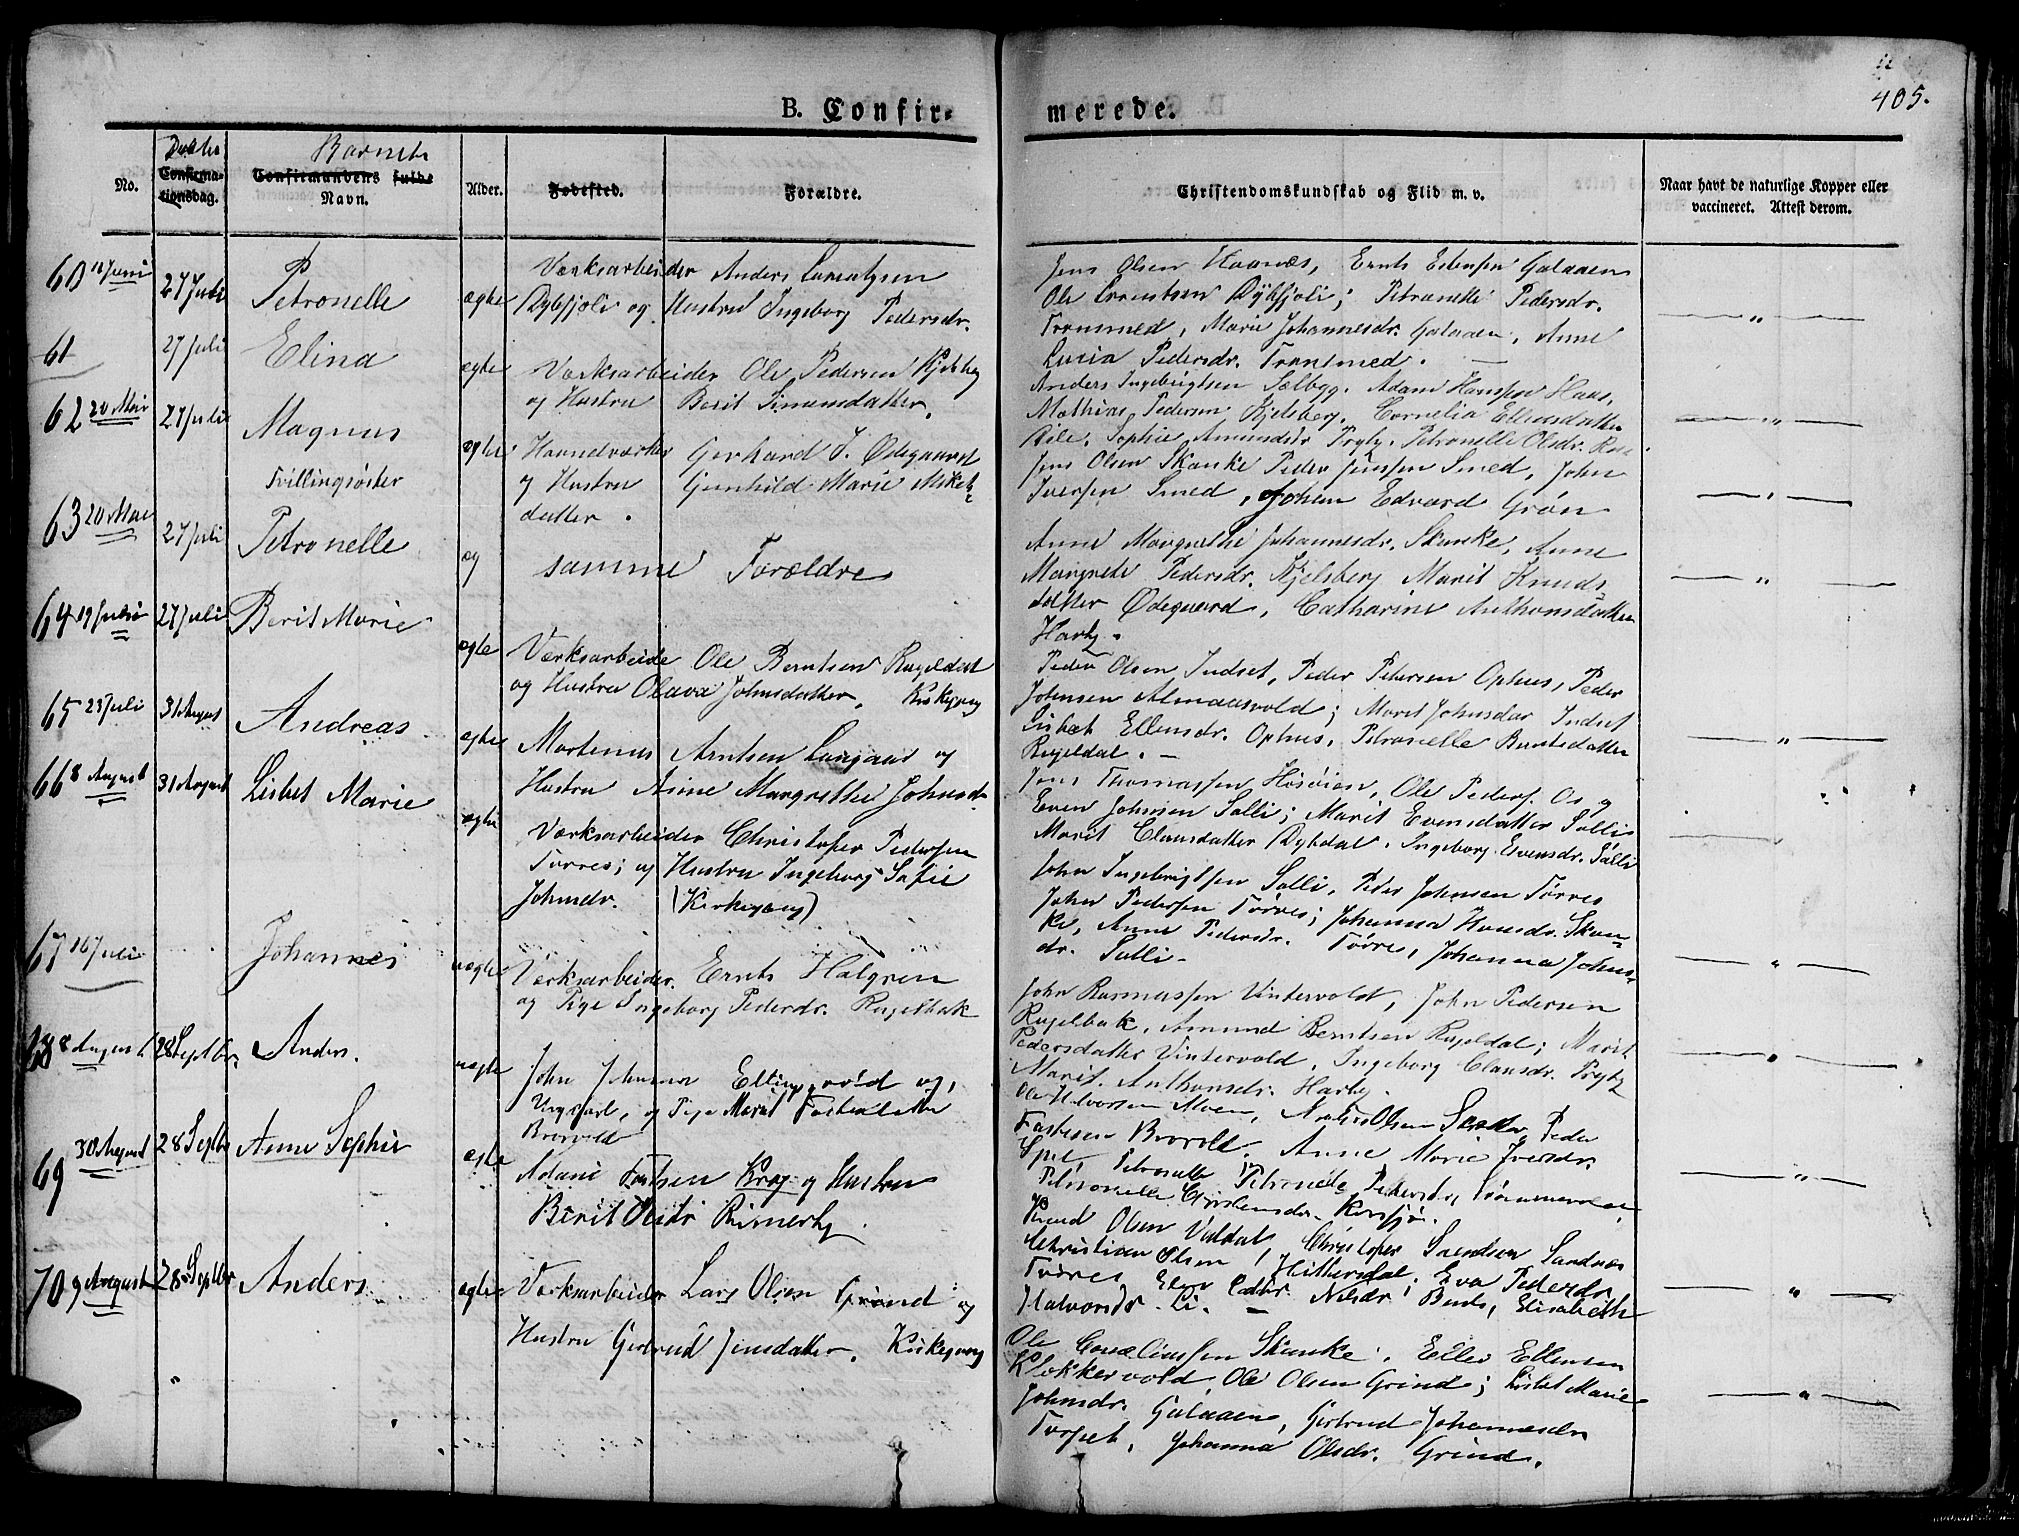 405.
B. Confir-
merede.
No.
Daab
Confirmationsdag.
Barnets
Confirmandens fulde
Navn.
Alder.
Fødested.
Forældre.
Christendomskundskab og Flid m. v.
Naar havt de naturlige Kopper eller
vaccineret. Attest derom.
60 11 Juni 27 Juli Petronelle ægte
Værksarbeider Anders Lorentzen
Dybfjeli og Hustru Ingeborg Pedersdr.
Jens Olsen Haanæs, Ernts Estensen Galaaen
Ole Lorentsen Dybfjeli; Petronelle Pedersdr.
Tronsmed, Marie Johannesdr. Galaaen, Anne
Lucia Pedersdr. Tronsmed.
61 27 Juli Elina ægte
Værksarbeider Ole Pedersen Kjelsberg
og Hustru Berit Simensdatter.
Anders Ingebrigtsen Sælbyg. Adam Hansen Haas,
Mathias Pedersen Kjelsberg. Cornelia Ellensdatter
Sophie Amundsdr Trygt, Petronelle Olsdr.
62 20 Mai 27 Juli Magnus ægte
Haandværker Gerhard J. Ødegaard
og Hustru Gunhild Marie Mikels-
datter.
Jens Olsen Skanke Peder Jensen Smed, John
Iversen Smed, Johan Edvard Grøn
Tvillingsøster
63 20 Mai 27 Juli Petronelle æg
samme Forældre
Anne Margrethe Johannesdr. Skanke, Anne
Margrete Pedersdr. Kjelsberg Marit Knuds
datter Ødegaard, Catharine Anthonsdatter
Harby.
64 19 Juli 27 Juli Berit Marie ægte
Værksarbeide Ole Berntsen Rugeldal
og Hustru Olava Johnsdatter. Kirkegang
Peder Olsen Indset, Peder Petersen Ophus, Peder
Johnsen Almaasvold; Marit Johnsdatter Indset
Lisbet Ellensdr. Ophus, Petronelle Berntsdatter
Rugeldal.
65 23 Juli 31 August Andreas ægte
Mortenus Arntsen Langaas og
Hustru Anne Margrethe Johnsd
Jens Thomassen Høsøien, Ole Peders. Os og
Even Johnsen Solli; Marit Evensdatter Solli
Marit Clausdatter Dybdal. Ingeborg Evensdr. Solli
66 8 August 31 August Lisbet Marie ægte
Værksarbeider Christopher Pedersen
Torres; og Hustru Ingeborg Sofie
Johnsdr. (Kirkegang)
John Ingebrigtsen Solli, Peder Johnsen Torres
John Pedersen Torres; Johanna Hansdr. Skan-
ke, Anne Pedersdr. Torres, Johanna Johns-
dr. Solli.
67 16 Juli Johannes uægte
Værksarbeider. Ernts Halgren
og Pige Ingeborg Pedersdr. Rugelbak
John Rasmussen Vintervold, John Pedersen
Rugelbak, Amund Berntsen Rugeldal; Marit
Pedersdatter Vintervold, Ingeborg Clausdr. Trygt
Marit Anthonsdr. Harby.
68 8 August 28 Septbr. Anders. uægte
John Johnsen Ellingsvold og,
Ungkarl, og Pige Marit Fastesdatter
Brovold
Ole Halvorsen Moen, Olsen Peder
Fastesen Brovold, Anne Marie Iversdr.
Petronelle Pedersdr,
Petronelle
69 30 August 28 Septbr Anne Sophie ægte
Adam Krog og Hustru
Berit Olsdr
Knud Olsen Valdal, Christopher Svendsen Sandnæs
Christian Olsen Hittersdal; Eva Pedersdr
Torres, Nilsdr Elisabeth
Halvorsdr. Li.
70 9 August 28 Septbr Anders. ægte
Værksarbeider Lars Olsen Grind og
Hustru Gjertrud Jensdatter. Kirkegang
Ole Corneliussen Skanke. Ellev Ellensen
Klokkervold, Ole Olsen Grind; Lisbet Marie
Johnsdr. Galaaen, Gjertrud Johannesdr
Torset, Johanna Olsdr. Grind.